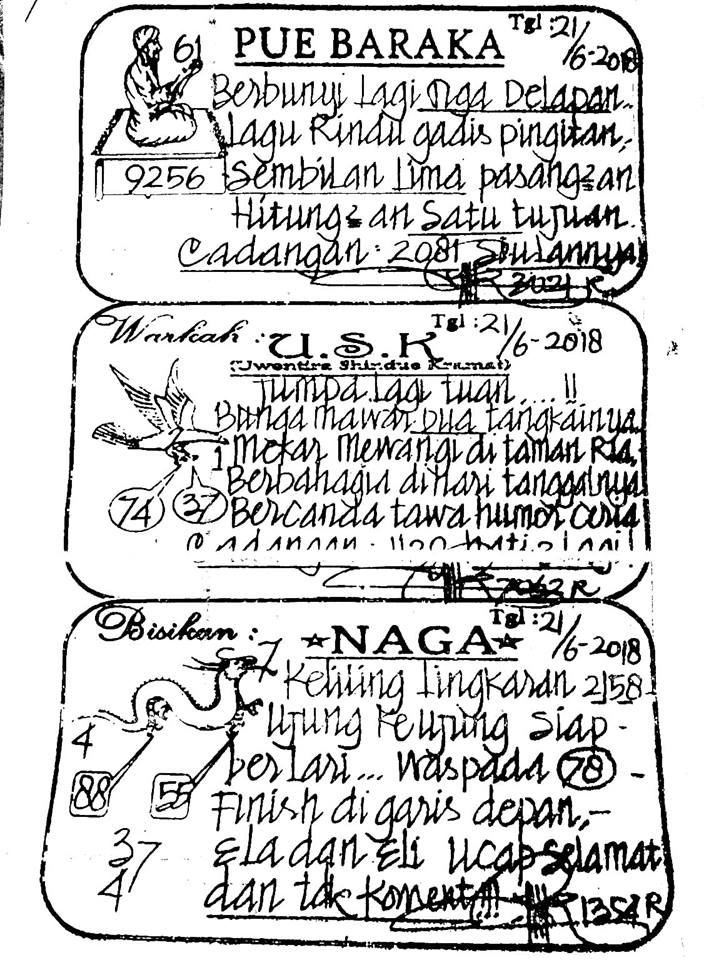 61 PUE BARAKA Tgl : 21/6-2018
Berbunyi Lagi nga Delapan..
Lagu Rindu gadis pingitan,-
9256 Sembilan Lima pasang2an
Hitung2an Satu tujuan.
Cadangan : 2081 Siulannya
2021 R
Warkah : U.S.K Tgl : 21/6-2018
(Uwentira Shindue Kramat)
jumpa Lagi tuan....!!
Bunga mawar Dua tangkainya
1 Mekar Mewangi di taman Ria,
Berbahagia diHari tanggalnya
74 37 Bercanda tawa humor ceria
Cadangan : 1120 hati2 Lagi!
R
Bisikan : NAGA Tgl : 21/6-2018
7 Keliling Lingkaran 2158
4 Ujung Ke Ujung siap -
berlari... Waspada 78 -
88 55 Finish di garis depan,-
37 Ela dan Eli ucap selamat
4 dan tdk Koment.!!!
1354 R